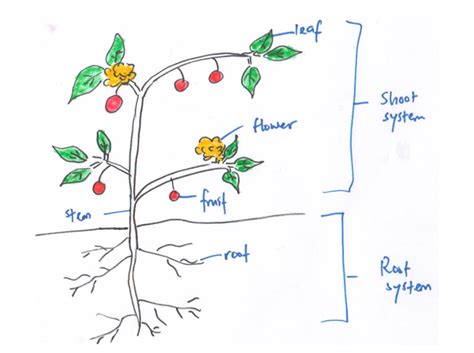 leaf
Shoot
system
flower
fruit
stem
root
Root
system